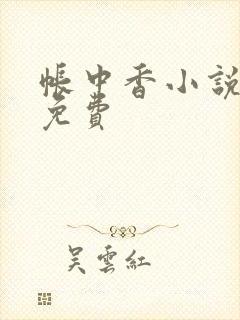 帳中香小説
免費
吳雲紅